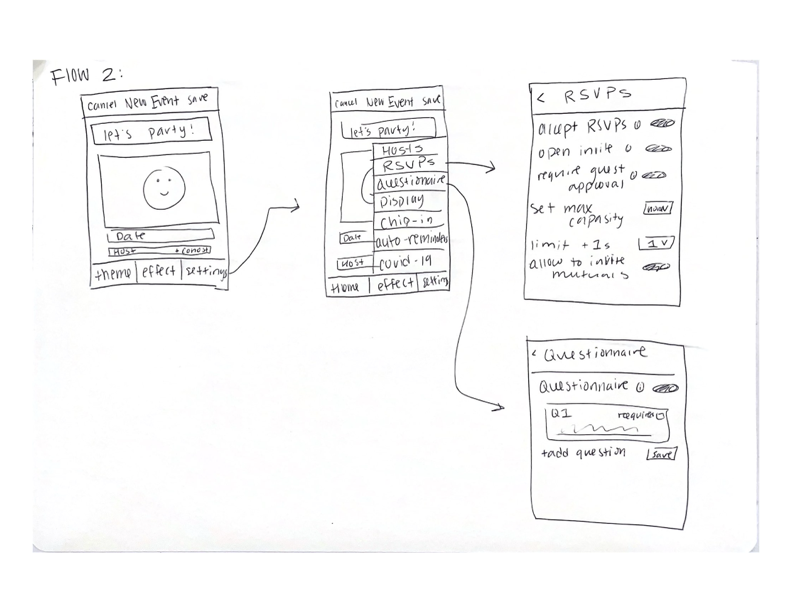 Flow 2:
Cancel New Event Save
let's party!
Date
Host +cohost
theme effect settings
Cancel New Event Save
let's party!
Hosts
RSVPs
Questionnaire
Display
chip-in
Date
auto-reminders
Host
covid-19
theme effect settings
< RSVPs
accept RSVPs
open invite
require guest
approval
set max
capasity
limit +1s 1 v
allow to invite
mutuals
< Questionnaire
Questionnaire
Q1 required
+add question save